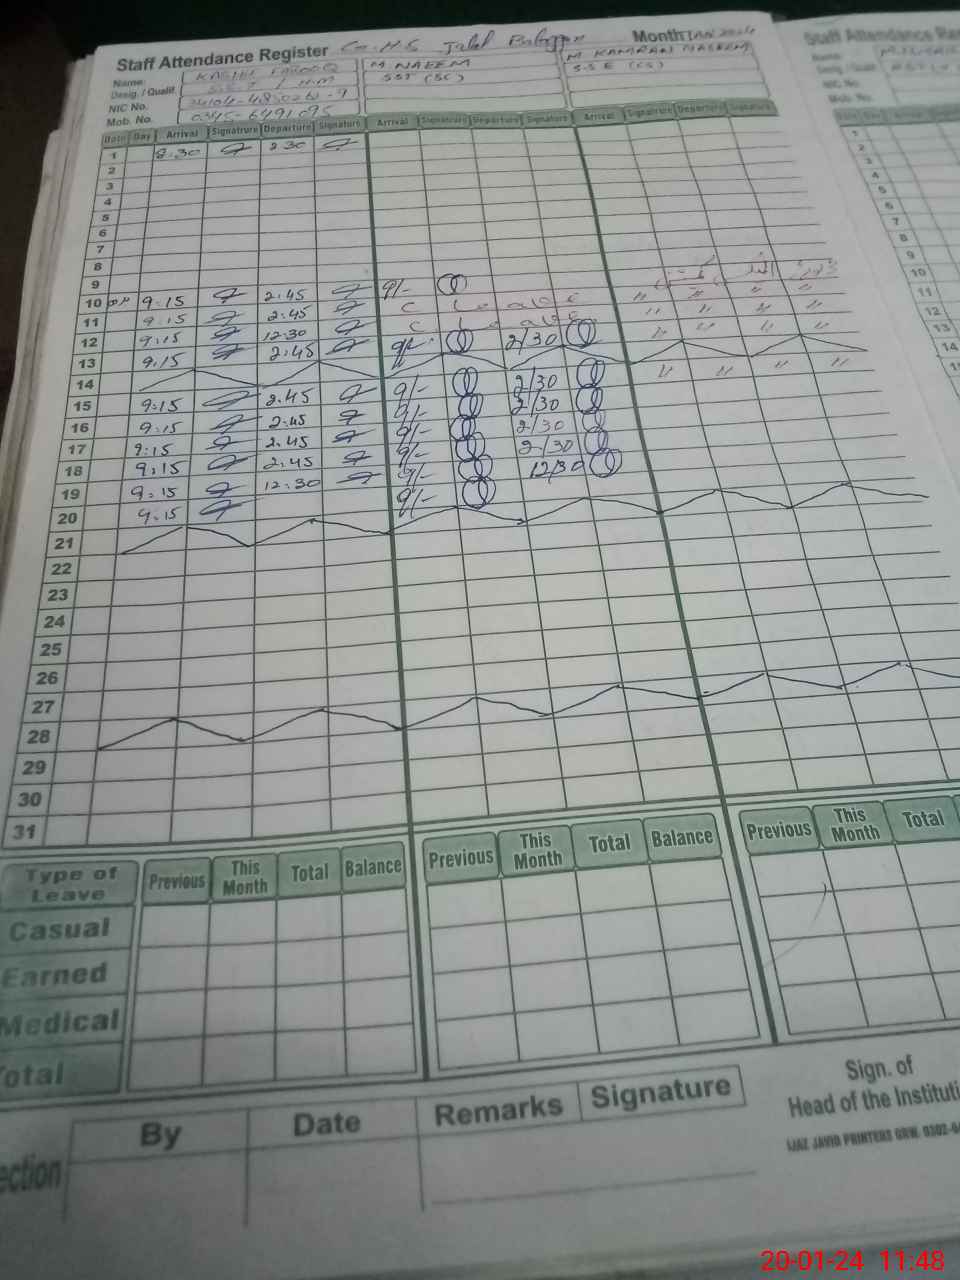 Staff Attendance Register G.H.S Month JAN 2024 Staff Attendance Re
Name: KASHIF FAROOQ M NAEEM M KAMRAN NASEEM
Desig. / Qualif. SST (SC) S.S.E (CS)
NIC No.
Mob. No. 0345-6491095
Date Day Arrival Signatrure Departure Signature Arrival Signatrure Departure Signature Arrival Signatrure Departure Signature
1 8:30 2:30
2
3
4
5
6
7
8
9
10 9:15 2:45 9/-
11 9:15 2:45 C Leave
12 9:15 12:30 C. Leave
13 9:15 2:45 9/- 2/30
14
15 9:15 2:45 9/- 2/30
16 9:15 2:45 9/- 2/30
17 9:15 2:45 9/- 2/30
18 9:15 2:45 9/- 2/30
19 9:15 12:30 9/- 12/30
20 9:15 9/-
21
22
23
24
25
26
27
28
29
30
31
Type of Leave Previous This Month Total Balance Previous This Month Total Balance Previous This Month Total
Casual
Earned
Medical
Total
By Date Remarks Signature
ection
Sign. of
Head of the Instituti
IJAZ JAVID PRINTERS GRW. 0302-6
20-01-24 11:48